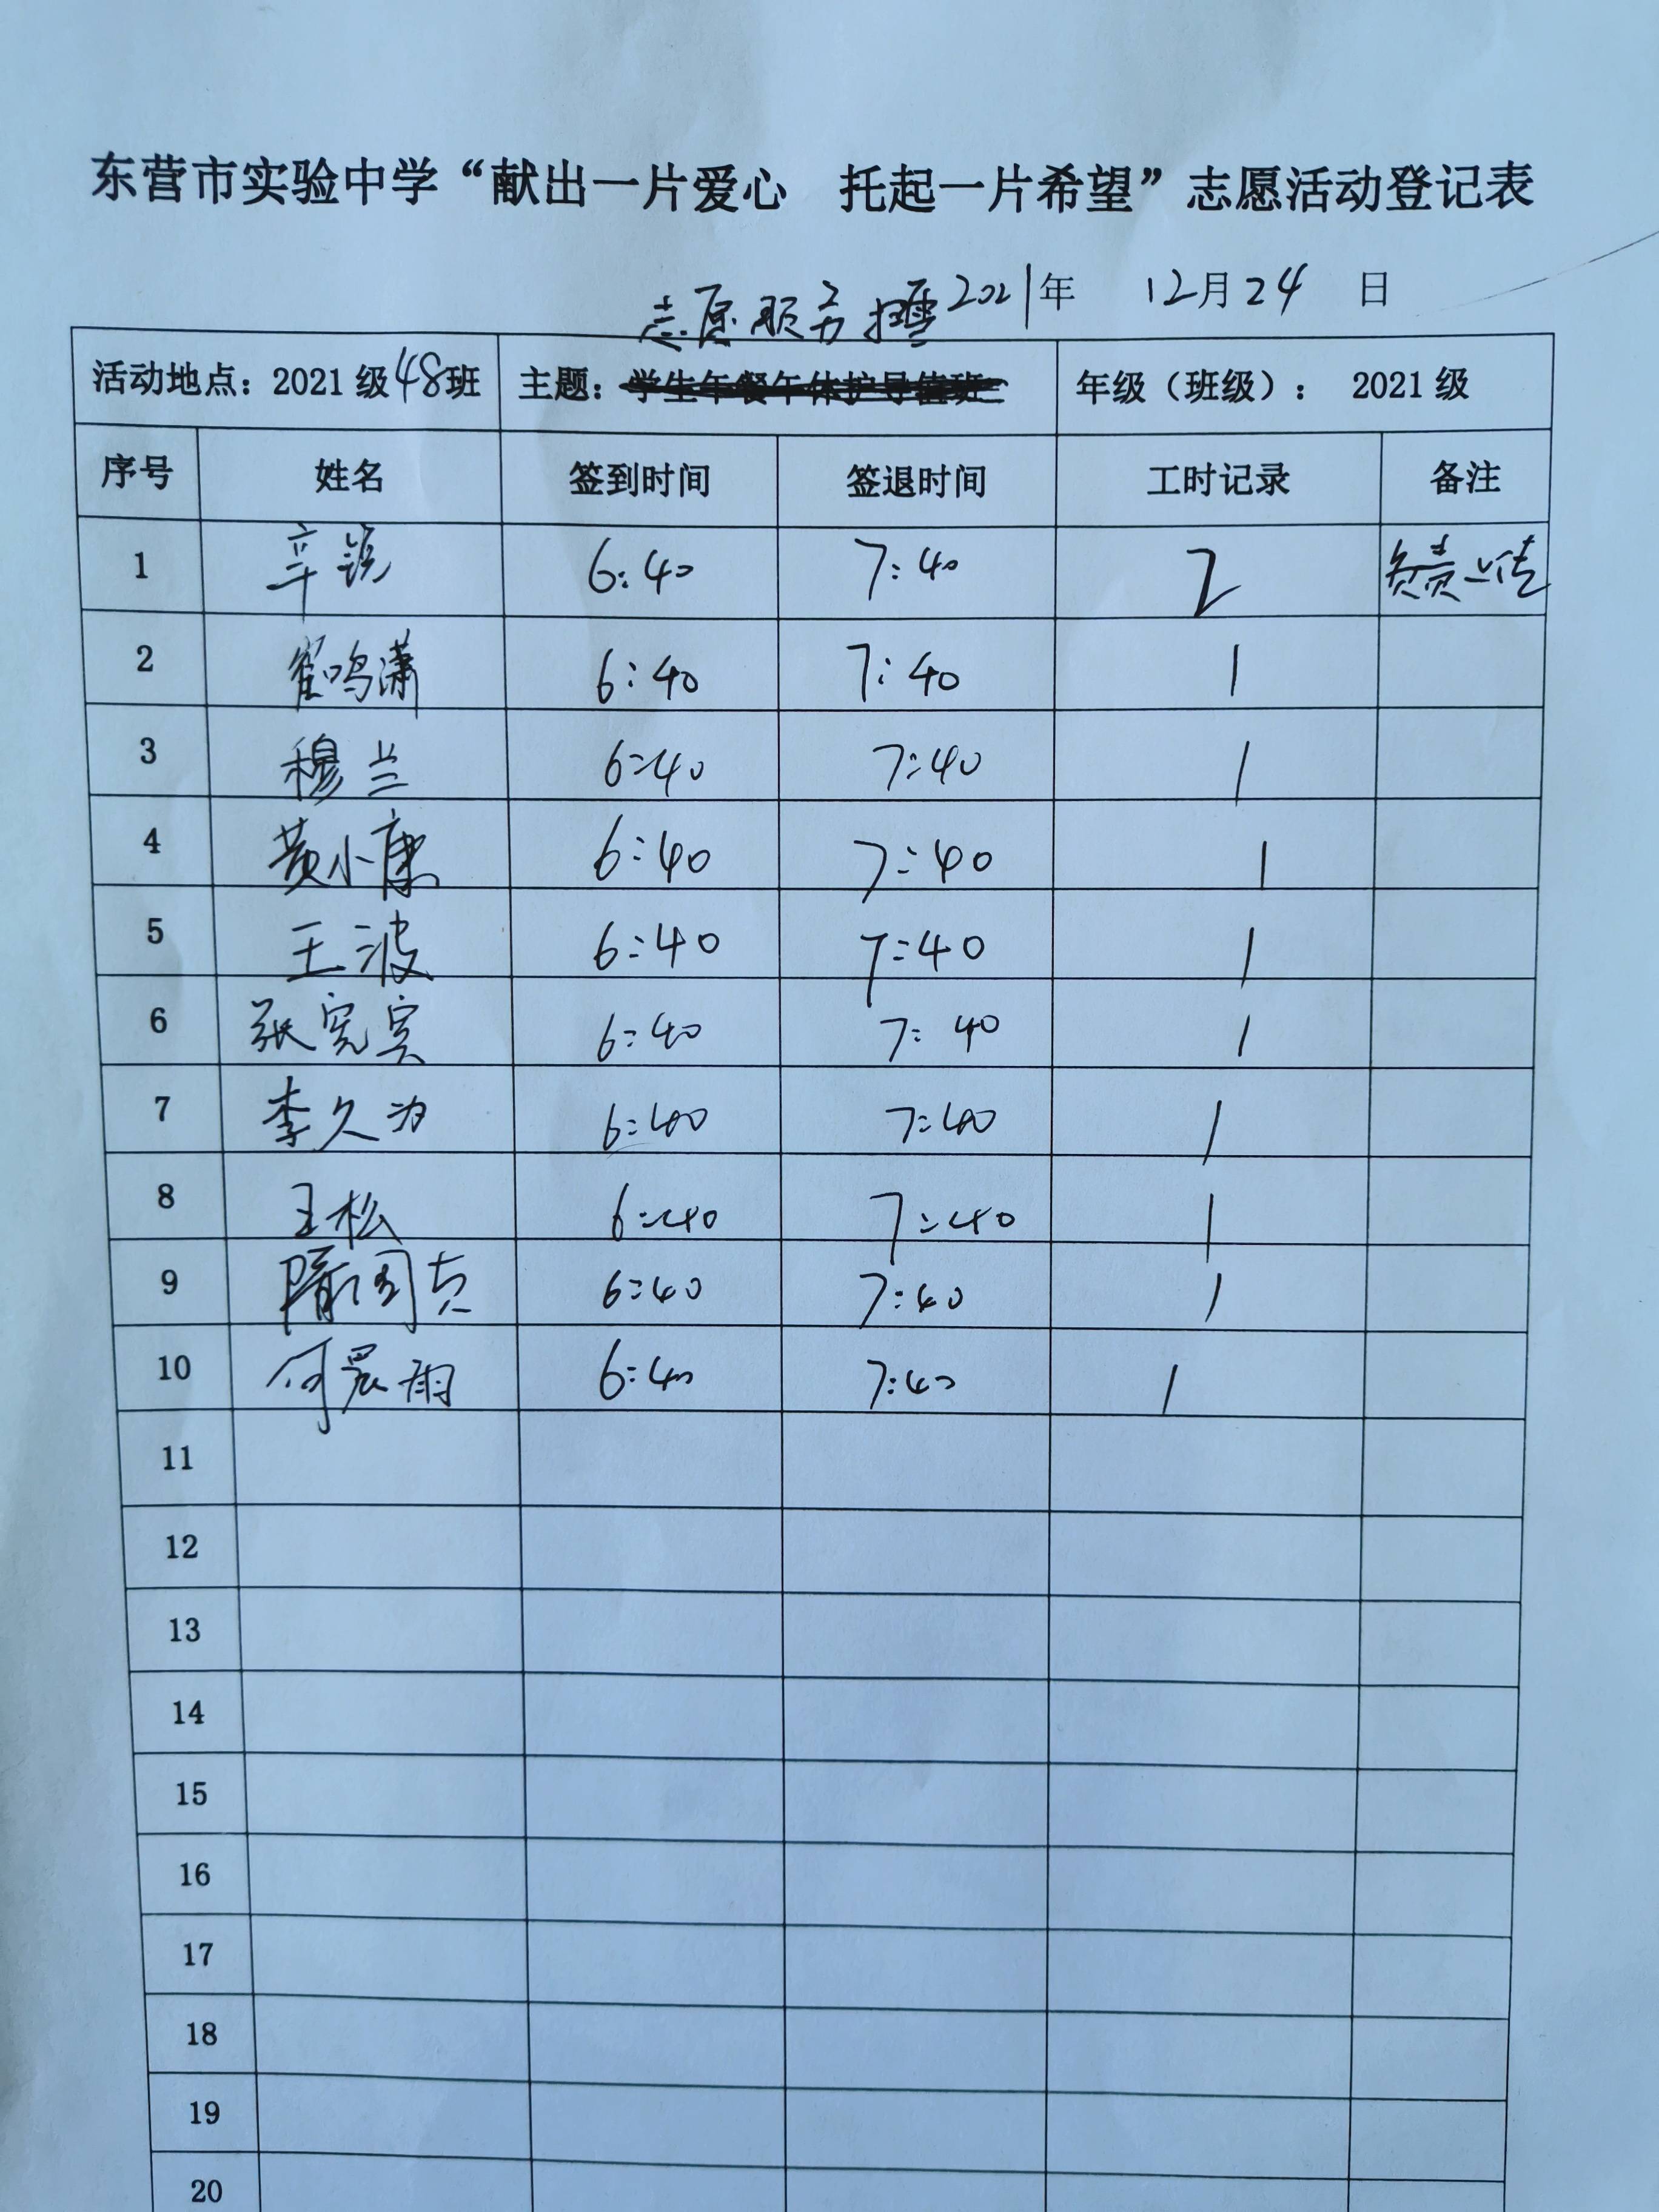 东营市实验中学“献出一片爱心 托起一片希望”志愿活动登记表
志愿服务扫雪 2021年 12月24 日
活动地点：2021级48班 主题：学生午餐午休护导值班 年级（班级）： 2021级
序号 姓名 签到时间 签退时间 工时记录 备注
1 辛锐 6:40 7:40 2 负责上传
2 崔鸣潇 6:40 7:40 1
3 穆兰 6:40 7:40 1
4 黄小康 6:40 7:40 1
5 王波 6:40 7:40 1
6 张宪宾 6:40 7:40 1
7 李久为 6:40 7:40 1
8 王松 6:40 7:40 1
9 隋国 6:40 7:40 1
10 何晨雨 6:40 7:40 1
11
12
13
14
15
16
17
18
19
20